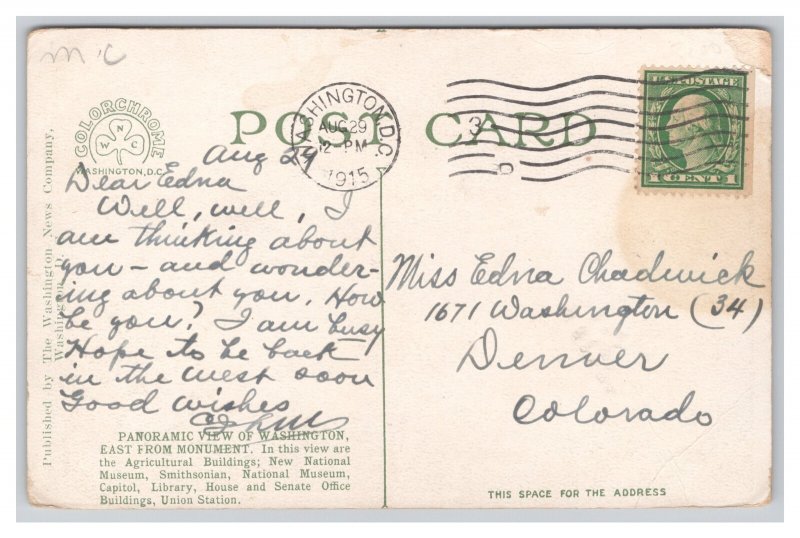 m 'c
COLORCHROME
N
W C
WASHINGTON, D.C.
POST CARD
WASHINGTON, D.C.
AUG 29
12-PM
1915
3
U.S. POSTAGE
1 CENT 1
Aug 29
Dear Edna
Well, well, I
am thinking about
you - and wonder-
ing about you. How
be you? I am busy
Hope to be back
in the west soon
Good wishes
Miss Edna Chadwick
1671 Washington (34)
Denver
Colorado
PANORAMIC VIEW OF WASHINGTON,
EAST FROM MONUMENT. In this view are
the Agricultural Buildings; New National
Museum, Smithsonian, National Museum,
Capitol, Library, House and Senate Office
Buildings, Union Station.
THIS SPACE FOR THE ADDRESS
Published by The Washington News Company,
Washington, D.C.